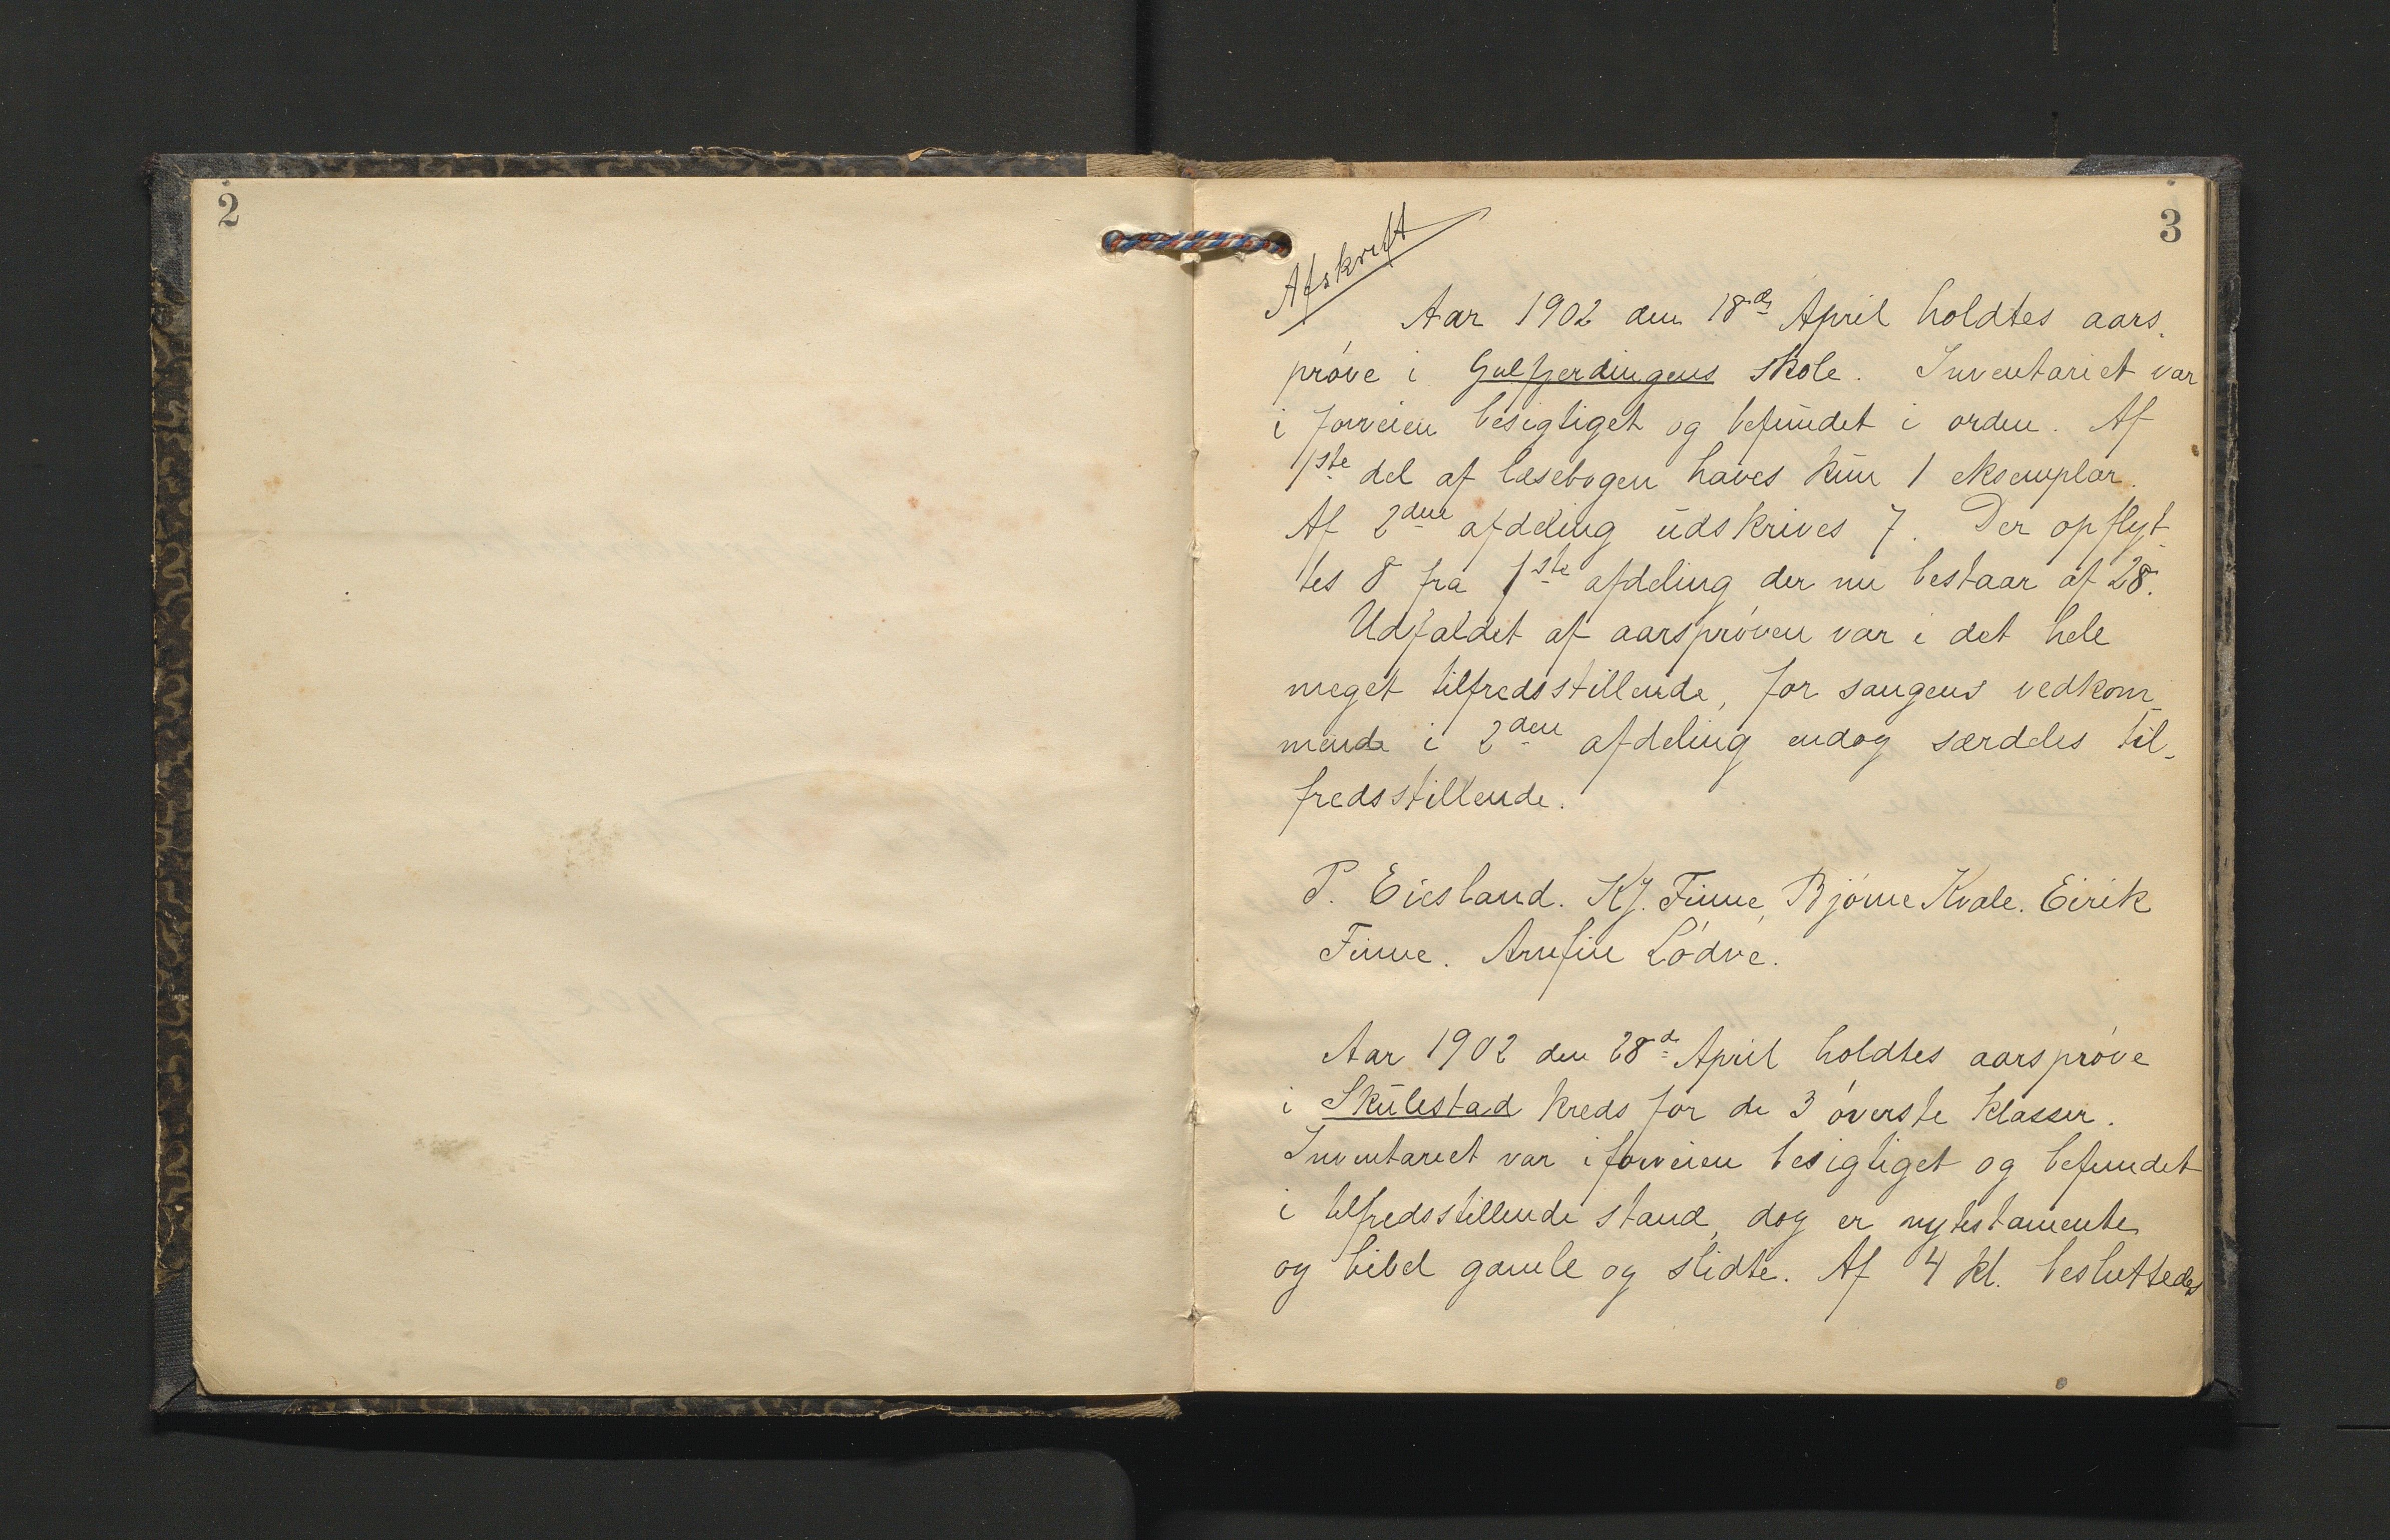 2
3
Afskrift
Aar 1902 den 18de April holdtes aars-
prøve i Gulfjerdingens skole. Inventariet var
i forveien besigtiget og befundet i orden. Af
1ste del af læsebogen haves kun 1 eksemplar.
Af 2den afdeling udskrives 7. Der opflyt-
tes 8 fra 1ste afdeling der nu bestaar af 28.
Udfaldet af aarsprøven var i det hele
meget tilfredsstillende, for sangens vedkom-
mende i 2den afdeling endog særdeles til-
fredsstillende.
P. Eiesland. Kj. Finne, Bjørne Kvale. Eirik
Finne. Arnfin Lødve.
Aar 1902 den 28de April holdtes aarsprøve
i Skulestad kreds for de 3 øverste klasser.
Inventariet var i forveien besigtiget og befundet
i tilfredsstillende stand, dog er nytestamente
og bibel gamle og slidte. Af 4 kl. besluttedes